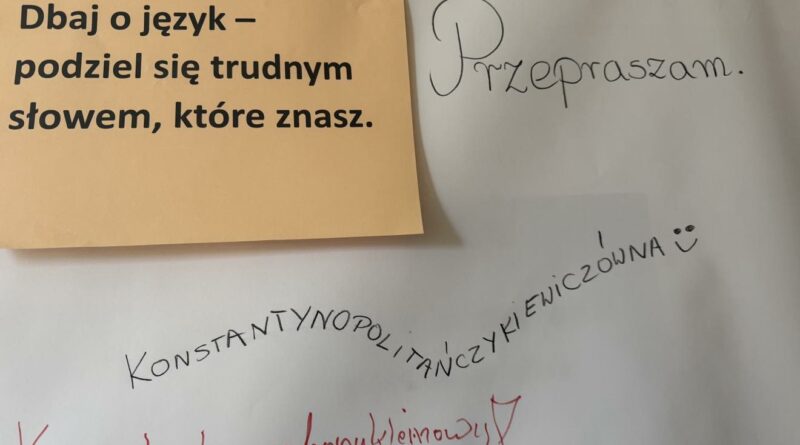 Dbaj o język –
podziel się trudnym
słowem, które znasz.
Przepraszam.
KONSTANTYNOPOLITAŃCZYKIEWICZÓWNA